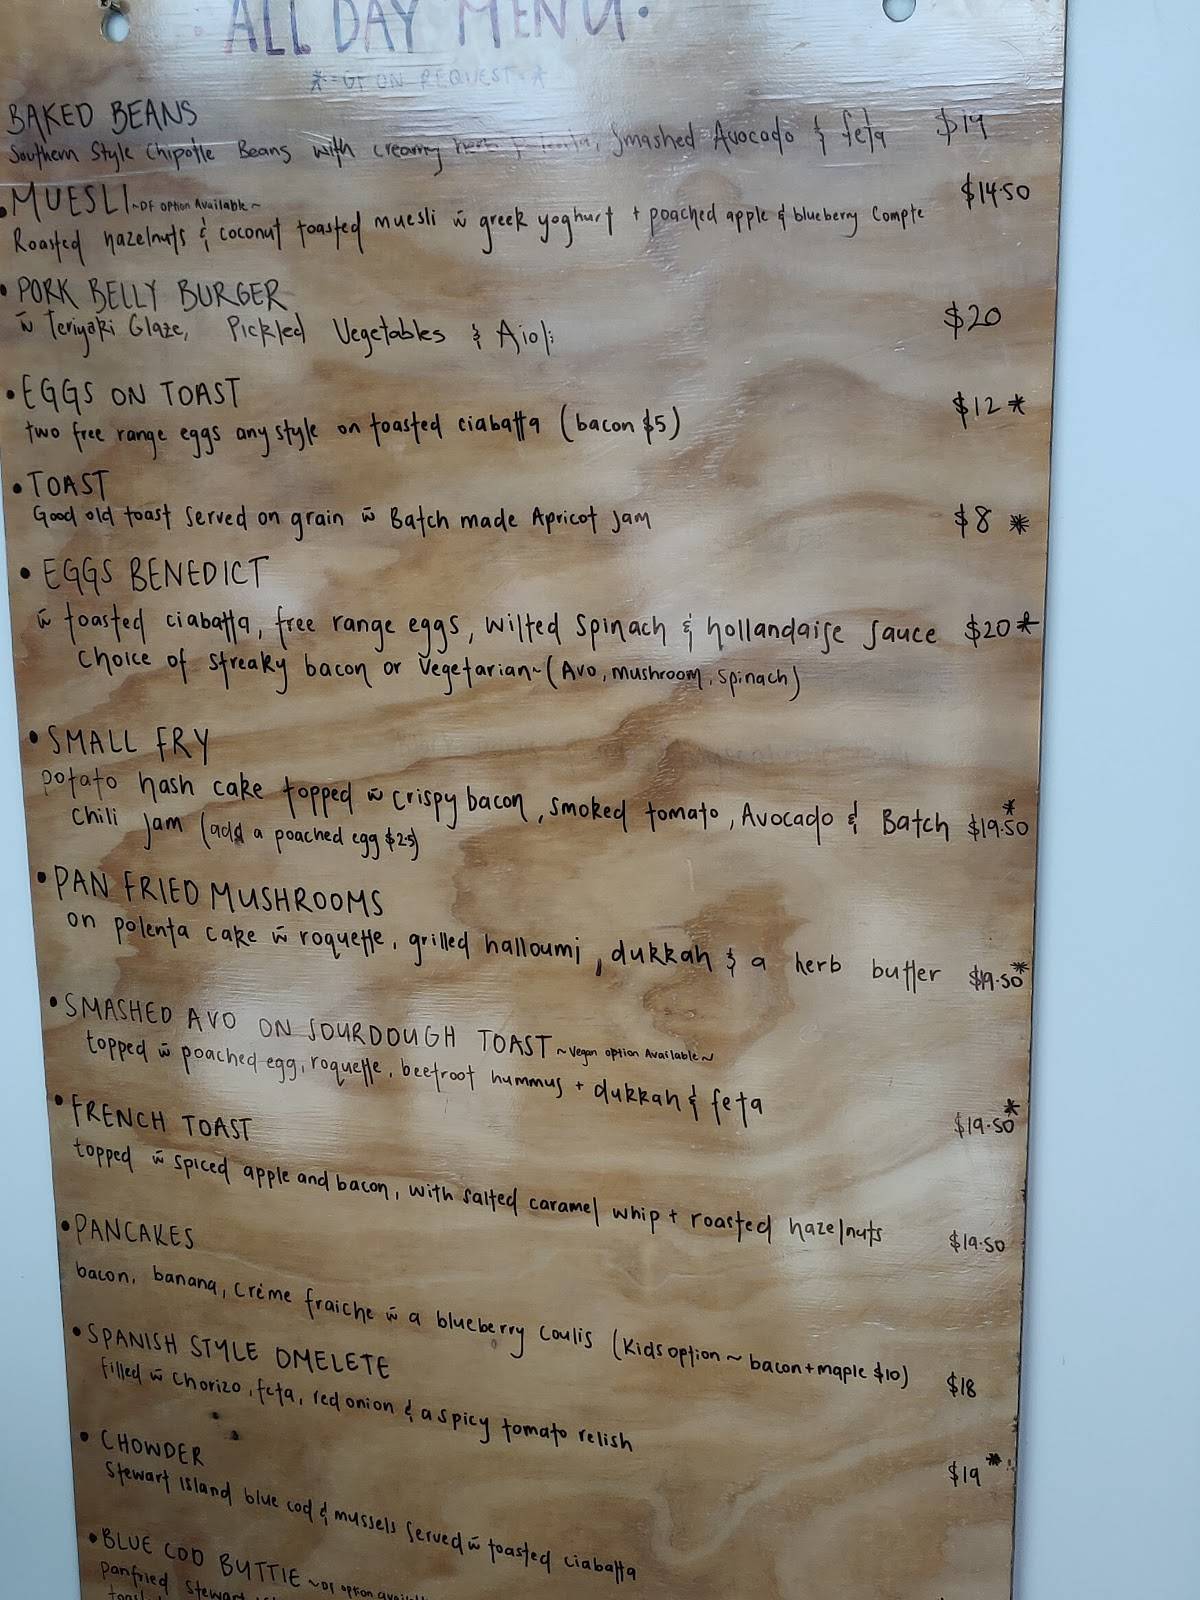 ALL DAY MENU.
*-GF ON REQUEST-*
BAKED BEANS
Southern Style Chipotle Beans with creamy herb Polenta, Smashed Avocado & feta $19
• MUESLI ~DF option Available~ $14.50
Roasted hazelnuts & coconut toasted muesli w greek yoghurt + poached apple & blueberry Compte
• PORK BELLY BURGER
w Teriyaki Glaze, Pickled Vegetables & Aioli $20
• EGGS ON TOAST $12 *
two free range eggs any style on toasted ciabatta (bacon $5)
• TOAST
Good old toast Served on grain w Batch made Apricot Jam $8 *
• EGGS BENEDICT
w toasted ciabatta, free range eggs, wilted Spinach & hollandaise sauce $20 *
Choice of streaky bacon or Vegetarian~ (Avo, mushroom, spinach)
• SMALL FRY
potato hash cake topped w crispy bacon, smoked tomato, Avocado & Batch $19.50 *
chili Jam (add a poached egg $2.5)
• PAN FRIED MUSHROOMS
on polenta cake w roquette, grilled halloumi, dukkah & a herb butter $19.50 *
• SMASHED AVO ON SOURDOUGH TOAST ~Vegan option Available~
topped w poached egg, roquette, beetroot hummus + dukkah & feta $19.50 *
• FRENCH TOAST
topped w spiced apple and bacon, with salted caramel whip + roasted hazelnuts $19.50
• PANCAKES
bacon, banana, crème fraiche w a blueberry coulis (Kids option ~ bacon + maple $10) $18
• SPANISH STYLE OMELETE
filled w Chorizo, feta, red onion & a spicy tomato relish $19 *
• CHOWDER
Stewart Island blue cod & mussels served w toasted ciabatta
• BLUE COD BUTTIE ~DF option
panfried